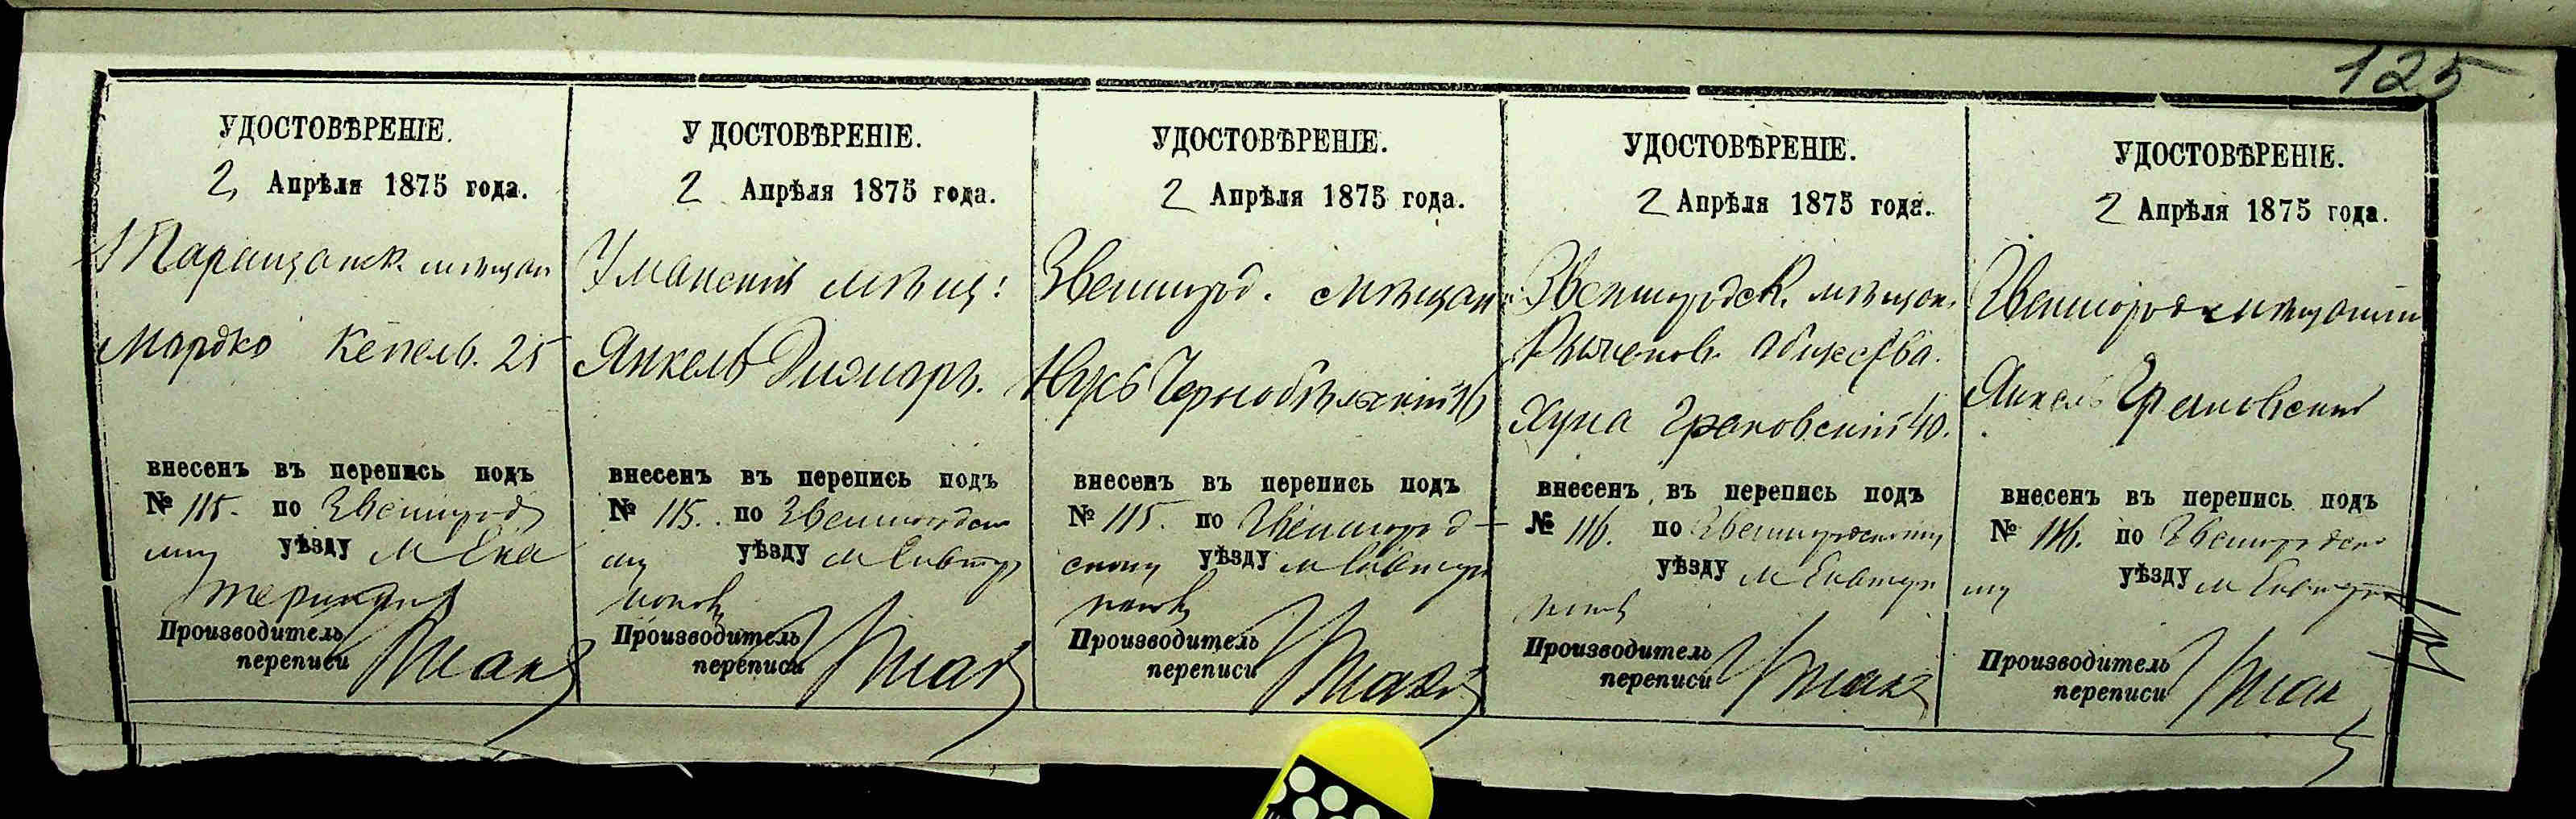 125
УДОСТОВѢРЕНІЕ.
2 Апрѣля 1875 года.
Таращанск. мѣщан
Мордко Кепель. 25
внесенъ въ перепись подъ
№ 115. по Звенигород
му уѣзду м Ека
терин
Производитель
переписи
УДОСТОВѢРЕНІЕ.
2 Апрѣля 1875 года.
Уманскій мѣщ:
Янкель
внесенъ въ перепись подъ
№ 115. по Звенигородско
му уѣзду м
Производитель
переписи
УДОСТОВѢРЕНІЕ.
2 Апрѣля 1875 года.
Звенигород. мѣщан
Чернобѣльскій
внесенъ въ перепись подъ
№ 115. по Звенигород-
скому уѣзду м
Производитель
переписи
УДОСТОВѢРЕНІЕ.
2 Апрѣля 1875 года.
Звенигородск. мѣщан.
общества.
Хуна Грановскій 40.
внесенъ въ перепись подъ
№ 116. по Звенигородскому
уѣзду м
Производитель
переписи
УДОСТОВѢРЕНІЕ.
2 Апрѣля 1875 года.
Звенигородск мѣщанин
Янкель Грановскій
внесенъ въ перепись подъ
№ 116. по Звенигородско
му уѣзду м
Производитель
переписи